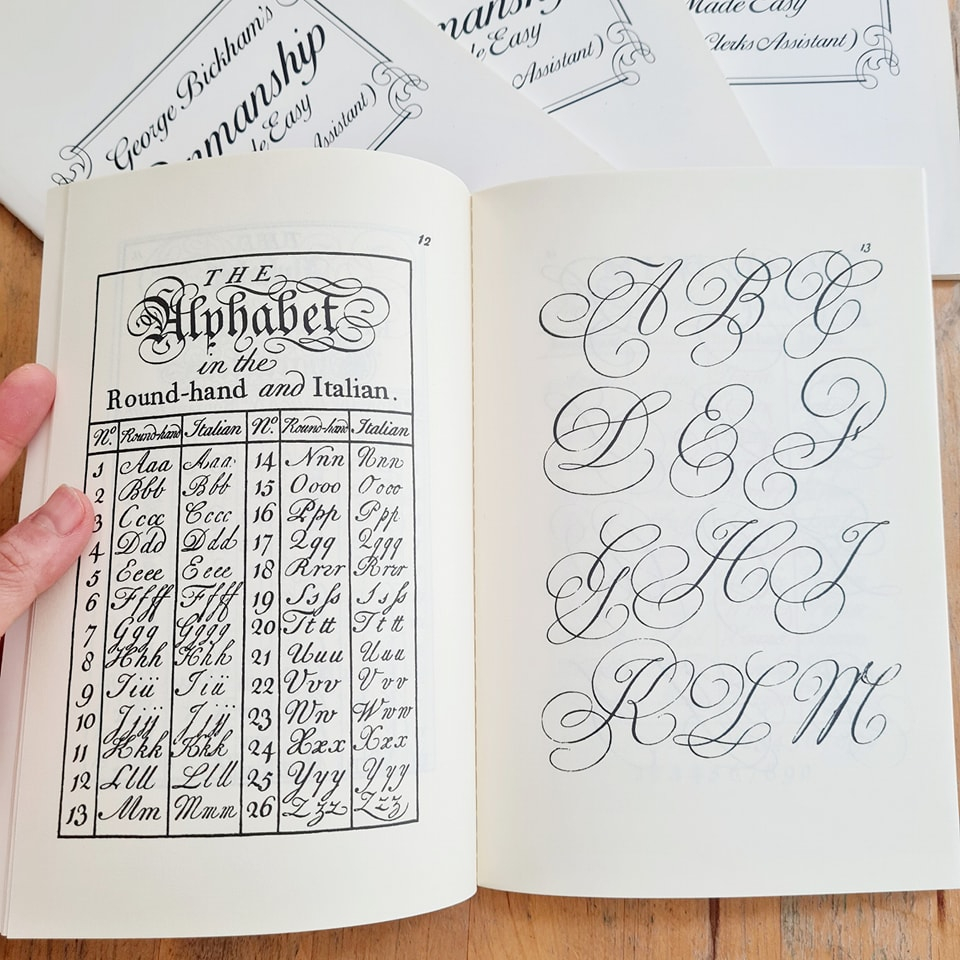 George Bickham's
nmanship
de Easy
Assistant)
manship
de Easy
Assistant)
Made Easy
Clerks Assistant)
12
THE
Alphabet
in the
Round-hand and Italian.
No. Round-hand Italian No. Round-hand Italian
1 Aaa Aaa 14 Nnn Nnn
2 Bbb Bbb 15 Oooo Oooo
3 Cccc Cccc 16 Ppp Ppp
4 Ddd Ddd 17 Qqq Qqqq
5 Eeee Eeee 18 Rrrr Rrrr
6 Ffff Ffff 19 Ssſs Ssſs
7 Ggg Gggg 20 Tttt Tttt
8 Hhh Hhh 21 Uuu Uuu
9 Iiii Iiii 22 Vvv Vvv
10 Jjjj Jjjj 23 Ww Www
11 Kkk Kkk 24 Xxx Xxx
12 Llll Llll 25 Yyy Yyy
13 Mm Mmm 26 Zzz Zzz
13
A B C
D E F
G H I
K L M